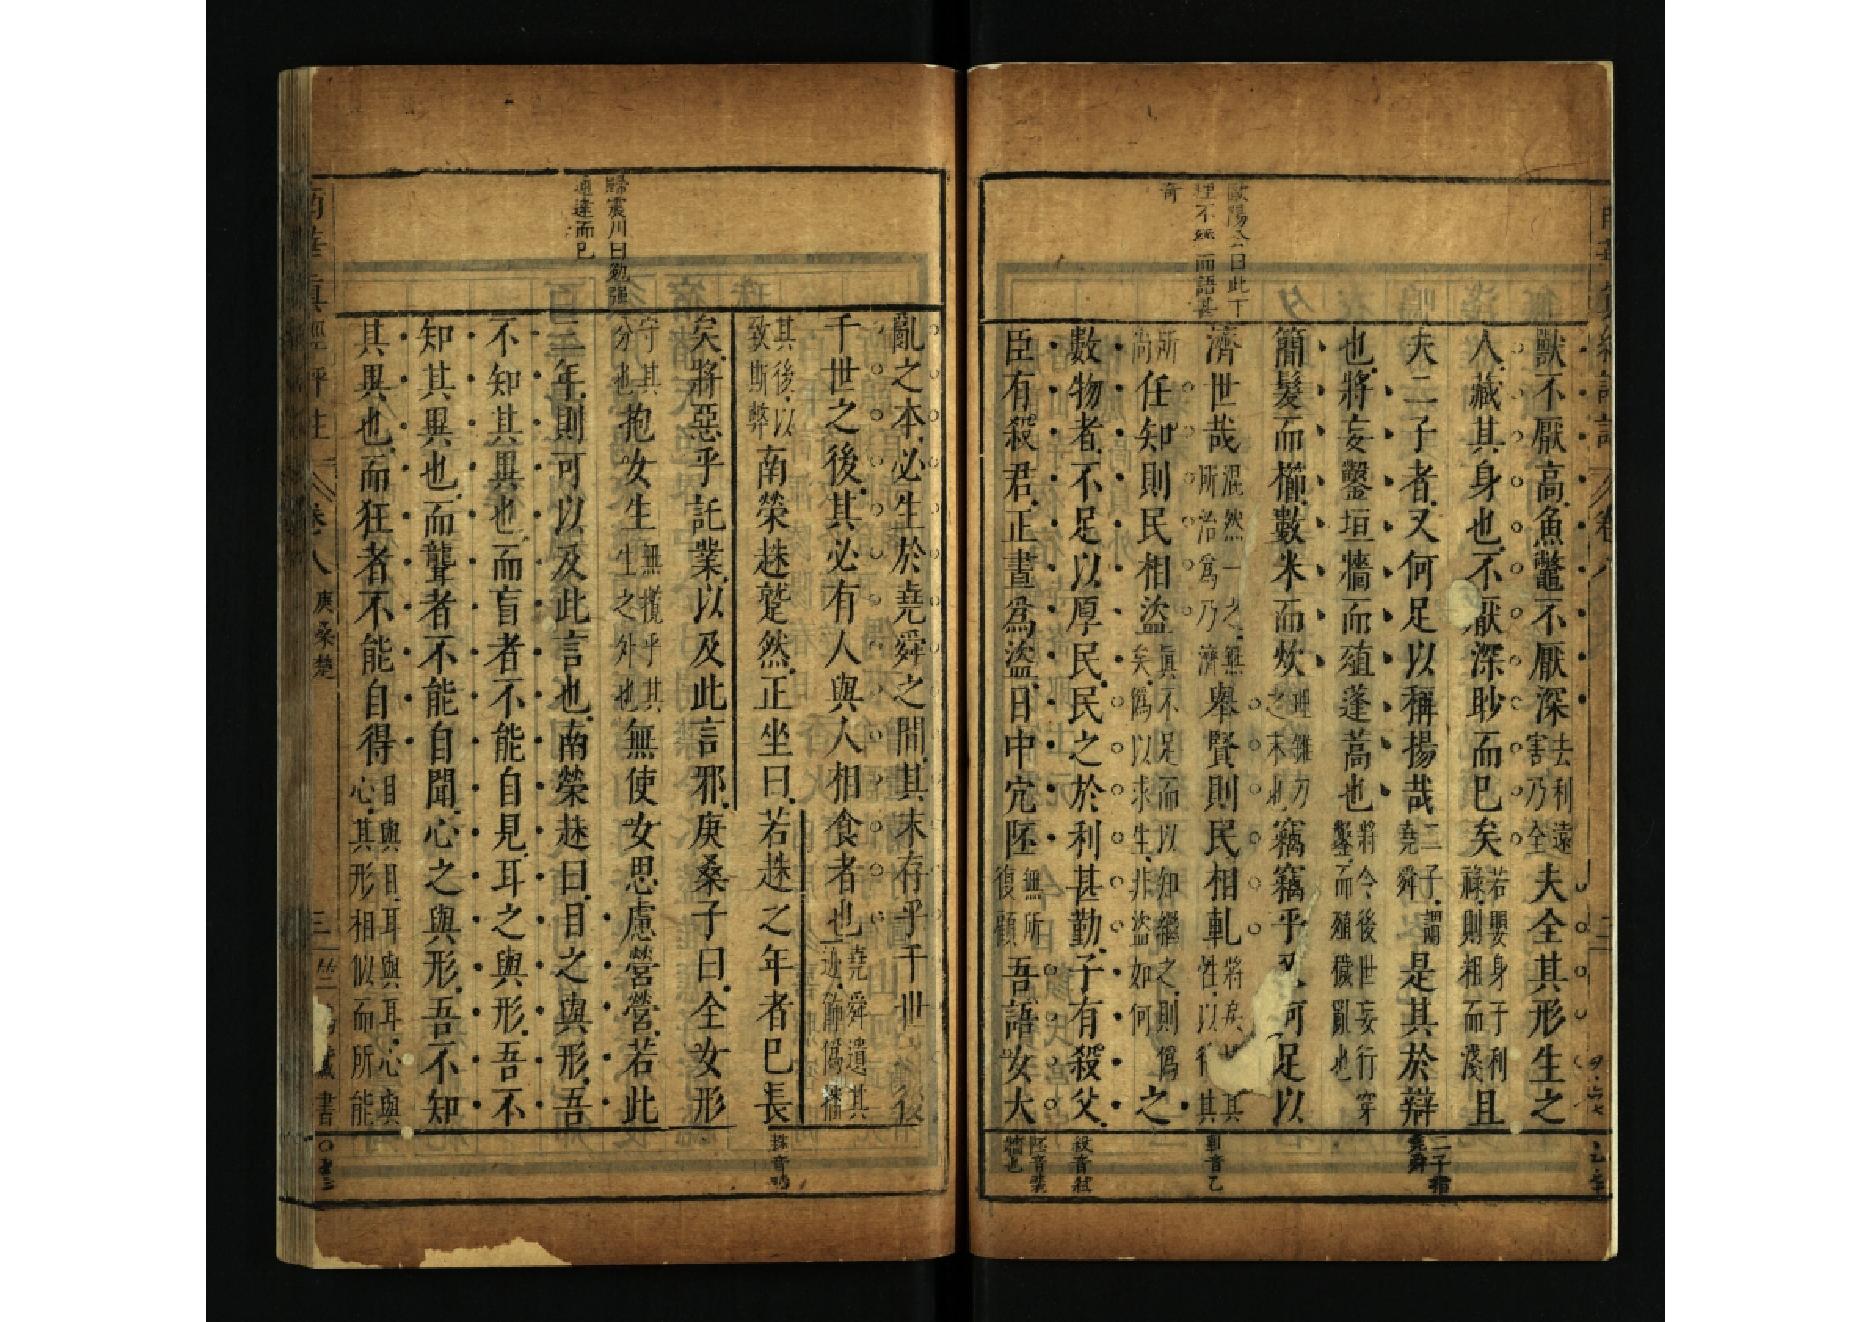 歐陽公曰此下
理不經而語甚
奇
獸不厭高魚鼈不厭深去利遠害乃全夫全其形生之
人藏其身也不厭深眇而巳矣若嬰身于利祿則粗而淺且
夫二子者又何足以稱揚哉二子謂堯舜是其於辯
也將妄鑿垣牆而殖蓬蒿也將令後世妄行穿鑿而殖穢亂也
簡髮而櫛數米而炊竊竊乎又何足以
濟世哉混然一之無所治爲乃濟舉賢則民相軋將戾其性以待其
所尚任知則民相盜眞不足而以知繼之則爲矣僞以求生非盜如何之
數物者不足以厚民民之於利甚勤子有殺父
臣有殺君正晝爲盜日中穴阫無所復顧吾語女大
二子指
堯舜
軋音乙
殺音弑
阫音裴
牆也
歸震川曰勉强
通達而巳
亂之本必生於堯舜之間其末存乎千世
千世之後其必有人與人相食者也堯舜遺其迹飾僞播
其後以致斯弊南榮趎蹵然正坐曰若趎之年者巳長
矣將惡乎託業以及此言邪庚桑子曰全女形
守其分也抱女生無攬乎其生之外也無使女思慮營營若此
三年則可以及此言也南榮趎曰目之與形吾
不知其異也而盲者不能自見耳之與形吾不
知其異也而聾者不能自聞心之與形吾不知
其異也而狂者不能自得目與目耳與耳心與心其形相似而所能
趎音
南華眞經評注
卷八
庚桑楚
三
藏書